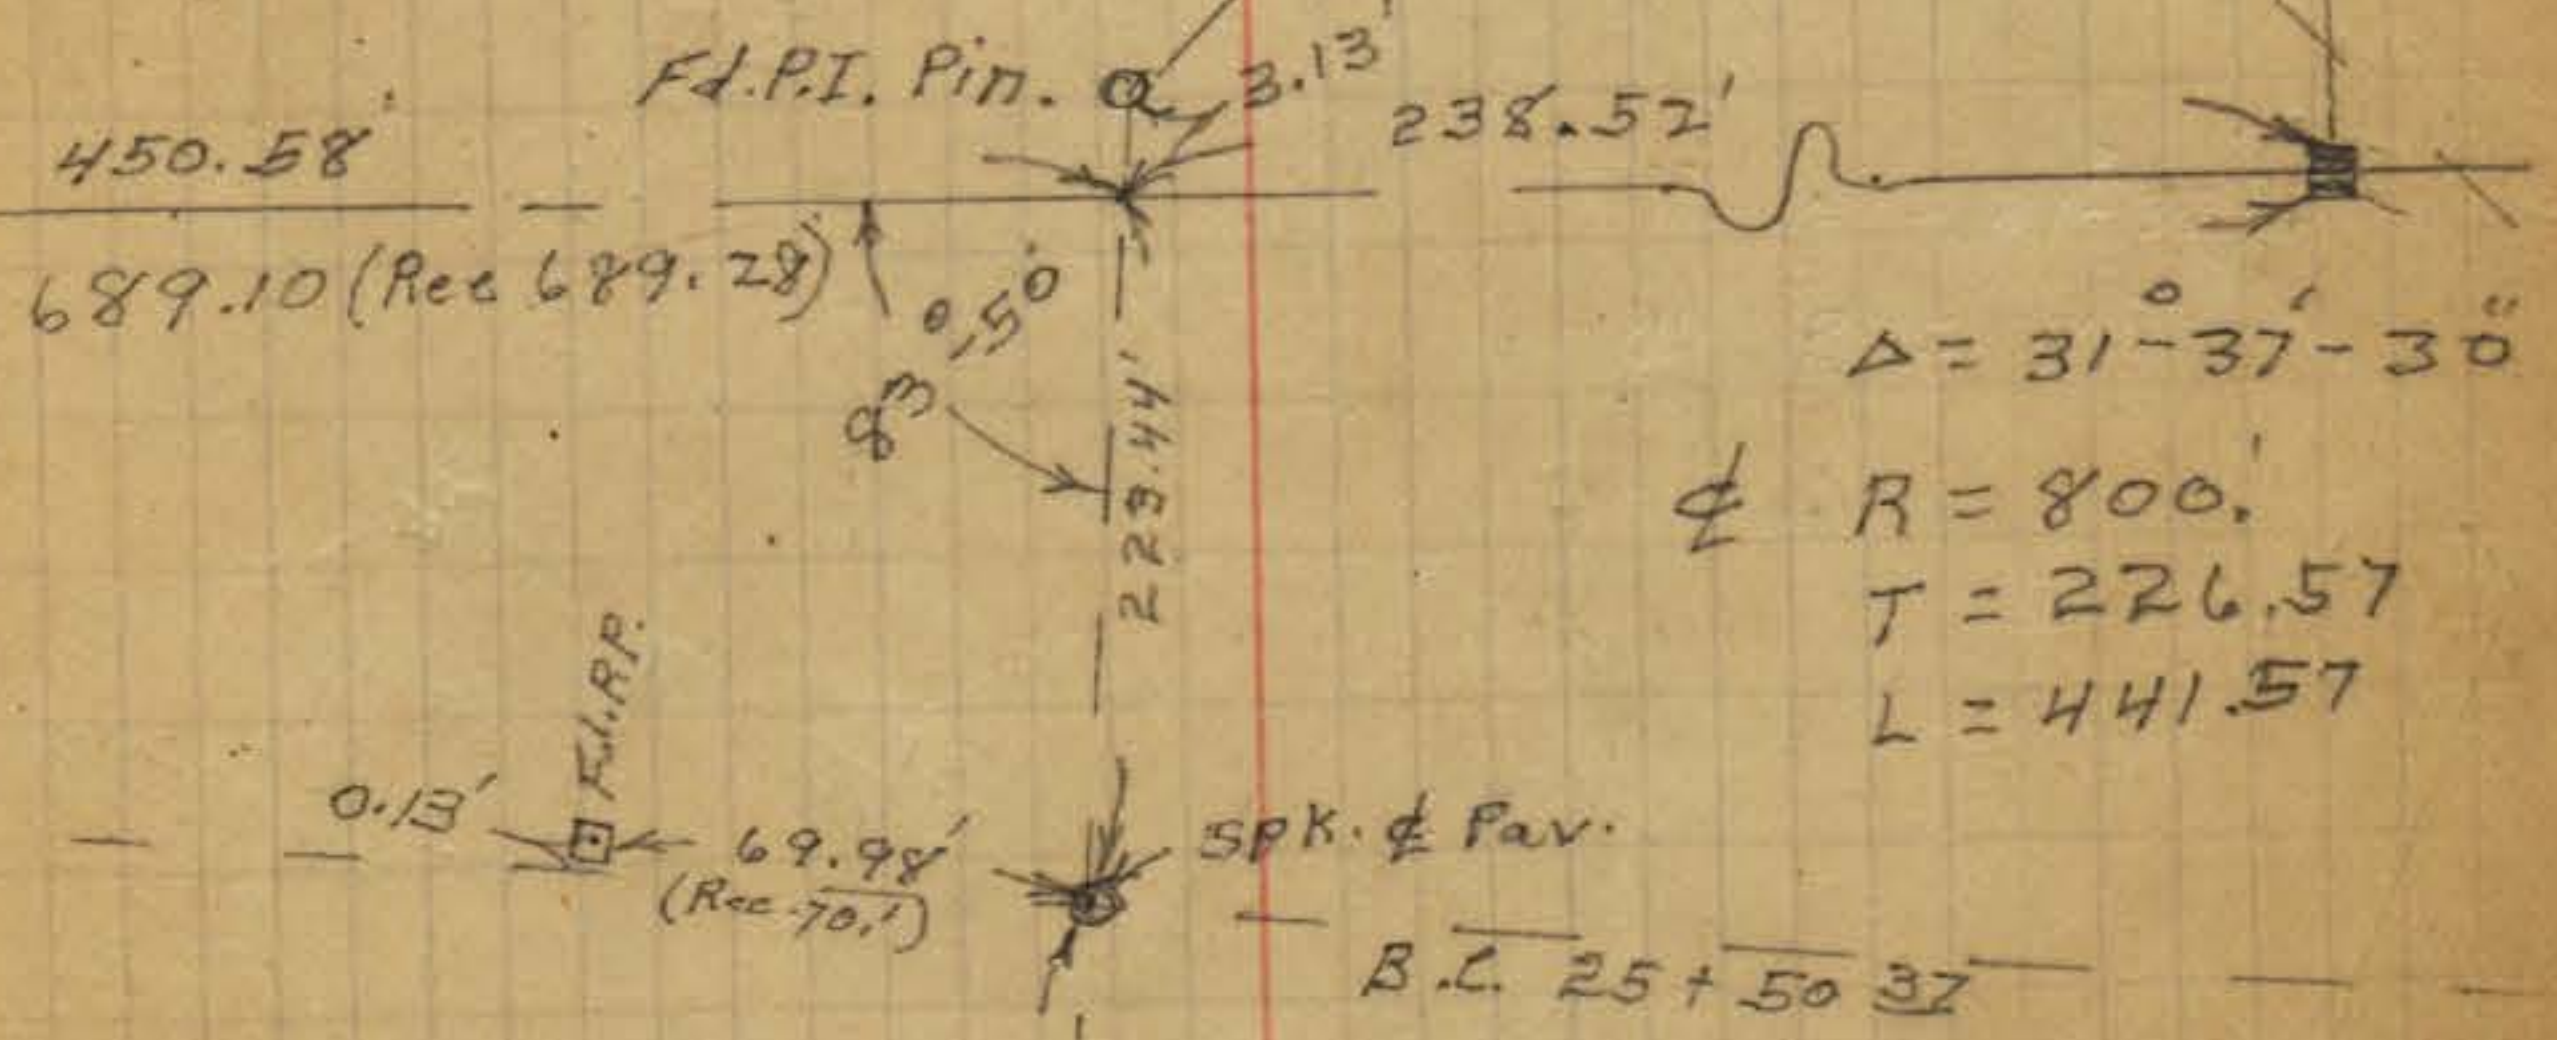 Fd.P.I. Pin.
3.13'
238.52'
450.58'
689.10 (Rec 689.28)
83°,50'
223.44'
Δ = 31°-37'-30"
₵ R = 800.'
T = 226.57
L = 441.57
Fd.R.P.
0.13'
69.98'
(Rec. 70.')
Spk. ₵ Pav.
B.C. 25 + 50 37